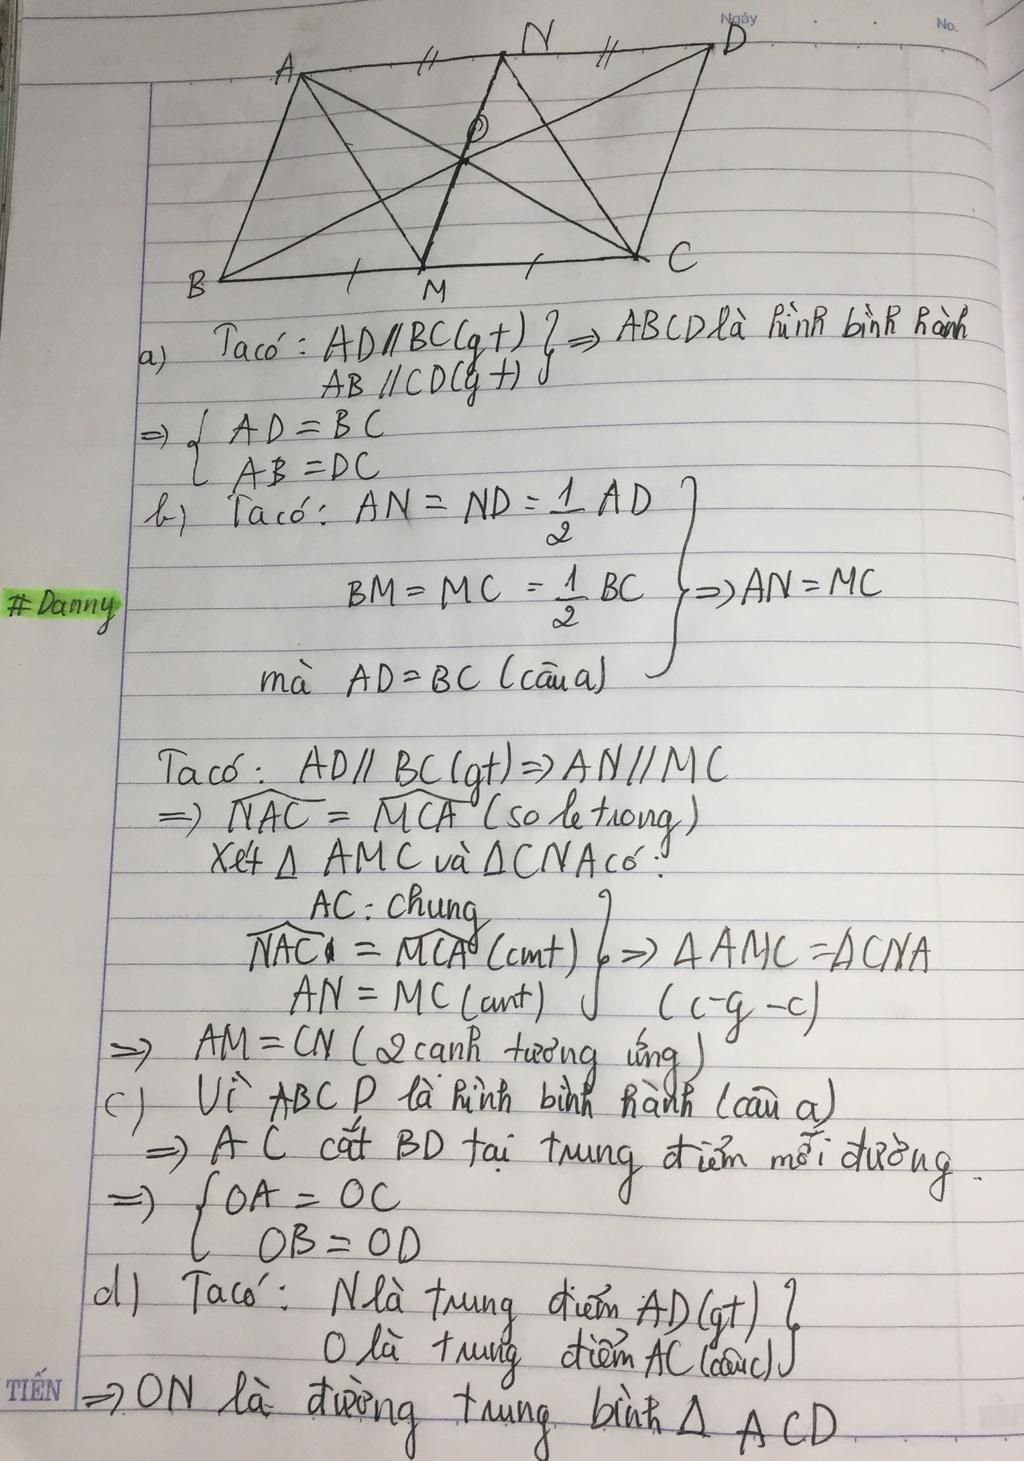 Ngày No.
N D
A
O
B M C
a) Ta có: AD // BC (gt) } => ABCD là hình bình hành
AB // CD (gt)
=> { AD = BC
AB = DC
b) Ta có: AN = ND = 1/2 AD
BM = MC = 1/2 BC } => AN = MC
#Danny
mà AD = BC (câu a)
Ta có: AD // BC (gt) => AN // MC
=> NAC = MCA (so le trong)
Xét Δ AMC và ΔCNA có:
AC: chung
NAC = MCA (cmt) } => Δ AMC = ΔCNA
AN = MC (cmt) (c-g-c)
=> AM = CN (2 cạnh tương ứng)
c) Vì ABCD là hình bình hành (câu a)
=> AC cắt BD tại trung điểm mỗi đường.
=> { OA = OC
OB = OD
d) Ta có: N là trung điểm AD (gt) }
O là trung điểm AC (câu c)
TIẾN
=> ON là đường trung bình Δ ACD